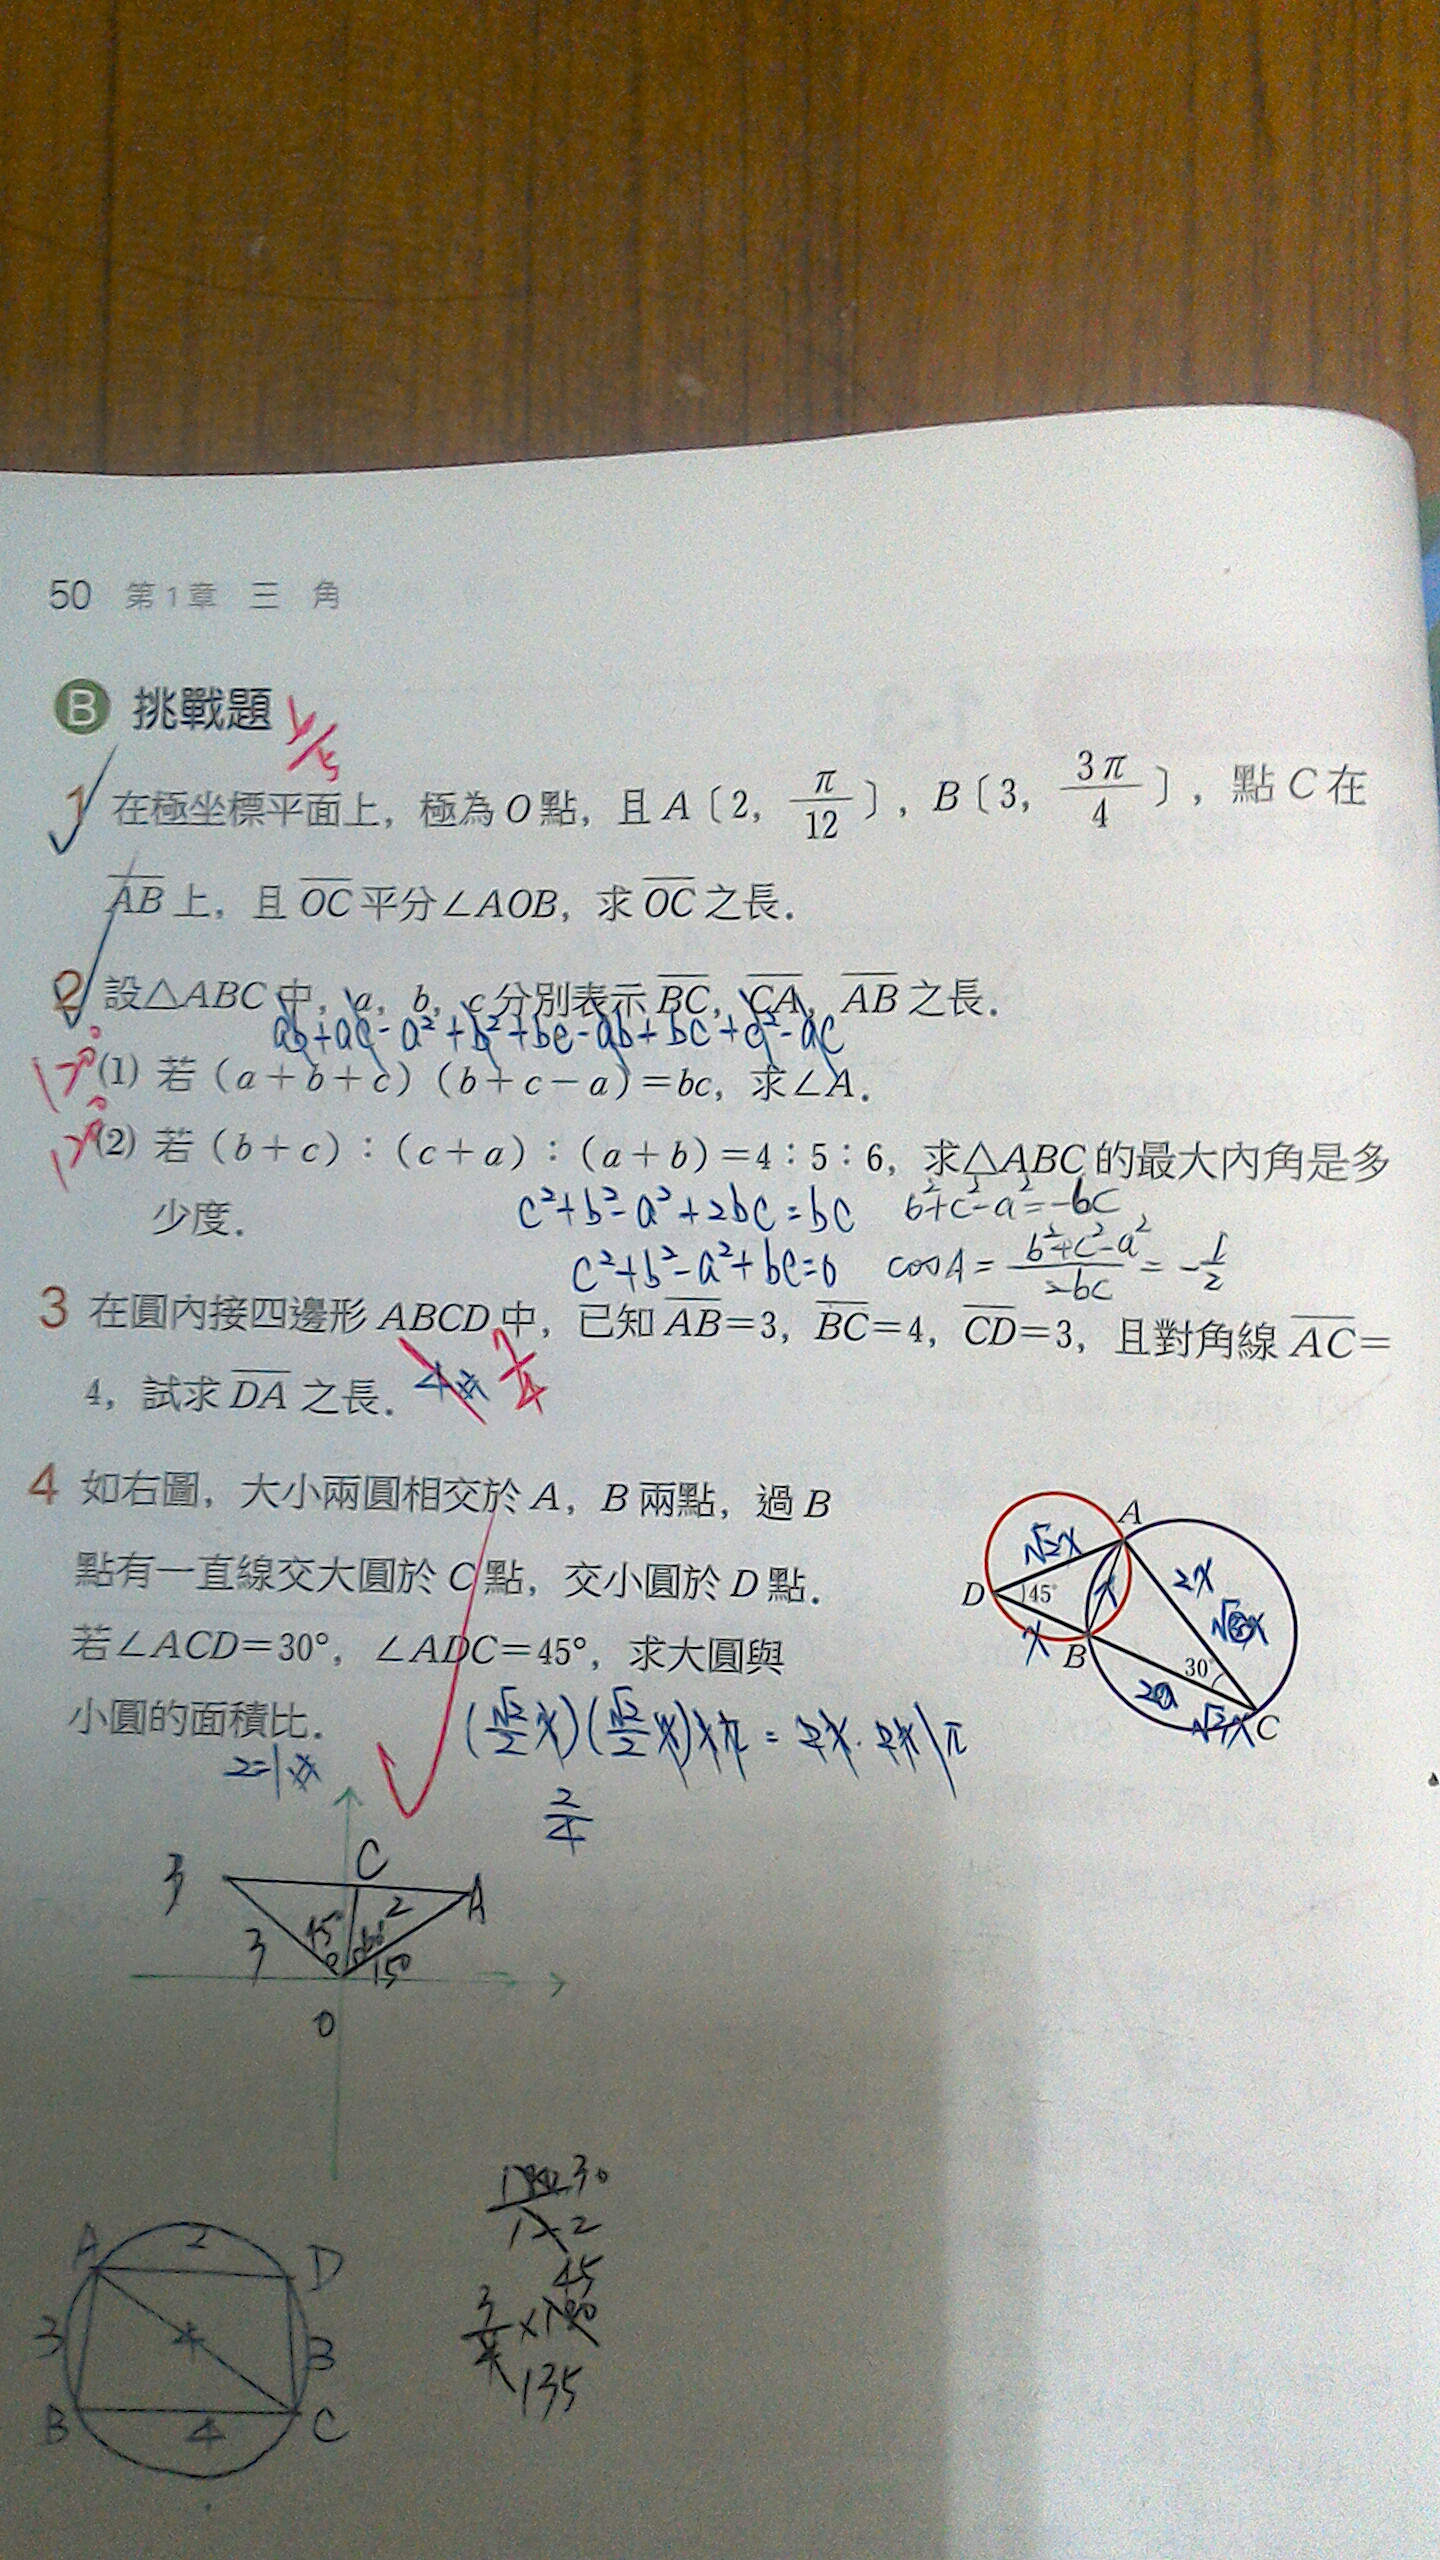 50 第1章 三 角
B 挑戰題
1 在極坐標平面上，極為O點，且A〔2，π/12〕，B〔3，3π/4〕，點C在
AB上，且OC平分∠AOB，求OC之長．
2 設△ABC中，a，b，c分別表示BC，CA，AB之長．
ab+ac-a²+b²+bc-ab+bc+c²-ac
120°
(1) 若（a＋b＋c）（b＋c－a）＝bc，求∠A．
120°
(2) 若（b＋c）：（c＋a）：（a＋b）＝4：5：6，求△ABC的最大內角是多
少度．
c²+b²-a²+2bc=bc b²+c²-a²=-bc
c²+b²-a²+bc=0 cosA=(b²+c²-a²)/2bc=-1/2
3 在圓內接四邊形ABCD中，已知AB＝3，BC＝4，CD＝3，且對角線AC＝
4，試求DA之長．
4 7/4
4 如右圖，大小兩圓相交於A，B兩點，過B
點有一直線交大圓於C點，交小圓於D點．
若∠ACD＝30°，∠ADC＝45°，求大圓與
小圓的面積比．
2=1
A
√2x
2x
D
45°
x
x
B
30°
√2x
C
(√2/2 x)(√2/2 x)xπ = 2x·2x π
2/4
C
3
2
A
3
45°
15°
O
180 30
12 2
45
3/4×180
135
A
2
D
3
4
3
B
4
C